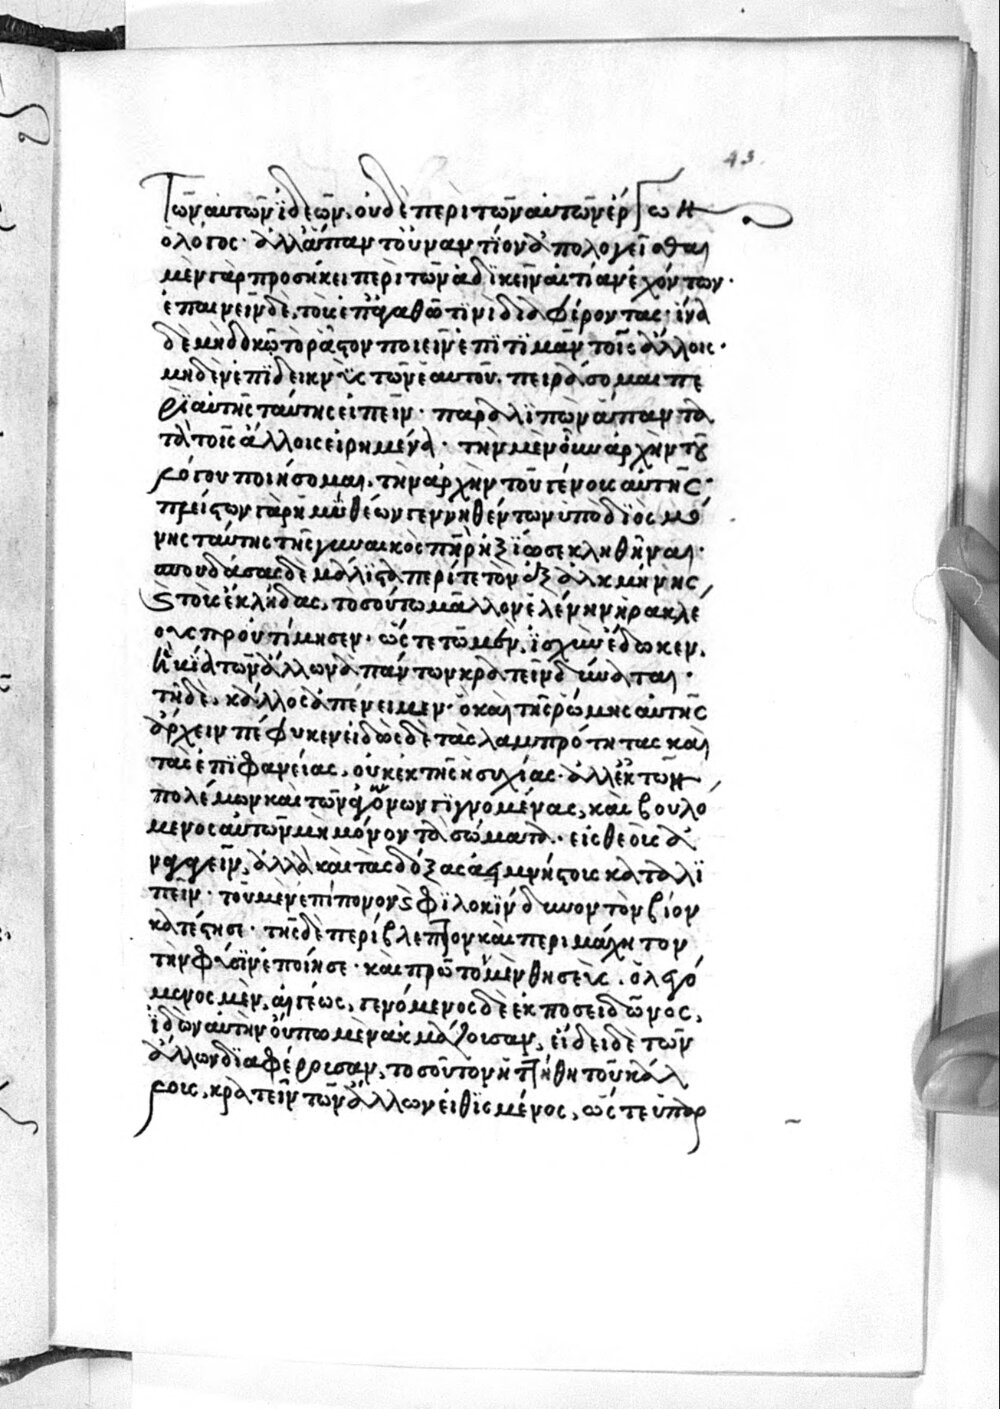 43.
τῶν αὐτῶν ἰδεῶν. οὐδὲ περὶ τῶν αὐτῶν ἔργων
ὁ λόγος· ἀλλ' ἅπαν τοὐναντίον ἀπολογεῖσθαι
μὲν γὰρ προσήκει περὶ τῶν ἀδικεῖν αἰτίαν ἐχόντων·
ἐπαινεῖν δὲ, τοὺς ἐπ' ἀγαθῶ τινὶ διαφέροντας· ἵνα
δὲ μὴ δοκῶ τὸ ρᾶστον ποιεῖν ἐπιτιμᾶν τοῖς ἄλλοις·
μηδὲν ἐπιδεικνὺς τῶν ἐμαυτοῦ. πειράσομαι πε
ρὶ αὐτῆς ταύτης εἰπεῖν· παραλιπὼν ἅπαντα
τὰ τοῖς ἄλλοις εἰρημένα· τὴν μὲν οὖν ἀρχὴν τοῦ
λόγου ποιήσομαι, τὴν ἀρχὴν τοῦ γένους αὐτῆς·
πλείστων γὰρ ἡμιθέων γεννηθέντων ὑπὸ διὸς μό
νης ταύτης τῆς γυναικὸς πατὴρ ἠξίωσε κληθῆναι·
σπουδάσας δὲ μάλιστα περί τε τὸν ἐξ ἀλκμήνης
καὶ τοὺς ἐκ λήδας, τοσούτω μᾶλλον ἑλένην ἡρακλέ
ους προὐτίμησεν· ὥστε τῶ μὲν, ἰσχὺν ἔδωκεν,
ἣ βία τῶν ἄλλων ἁπάντων κρατεῖν δύναται·
τῆ δὲ, κάλλος ἀπένειμεν· ὃ καὶ τῆς ρώμης αὐτῆς
ἄρχειν πέφυκεν εἰδὼς δὲ τὰς λαμπρότητας καὶ
τὰς ἐπιφανείας, οὐκ ἐκ τῆς ἡσυχίας· ἀλλ' ἐκ τῶν
πολέμων καὶ τῶν ἀγώνων γιγνομένας, καὶ βουλό
μενος αὐτῶν μὴ μόνον τὰ σώματα· εἰς θεοὺς ἀ
ναγαγεῖν, ἀλλὰ καὶ τὰς δόξας ἀειμνήστους καταλι
πεῖν· τοῦ μὲν ἐπίπονον καὶ φιλοκίνδυνον τὸν βίον
κατέστησε· τῆς δὲ περίβλεπτον καὶ περιμάχητον
τὴν φύσιν ἐποίησε· καὶ πρῶτον μὲν θησεὺς. ὁ λεγό
μενος μὲν, αἰγέως, γενόμενος δὲ ἐκ ποσειδῶνος,
ἰδὼν αὐτὴν οὔπω μὲν ἀκμάζουσαν, ἤδη δὲ τῶν
ἄλλων διαφέρουσαν, τοσοῦτον ἡττήθη τοῦ κάλ
λους, κρατεῖν τῶν ἄλλων εἰθισμένος, ὥστε ὑπαρ